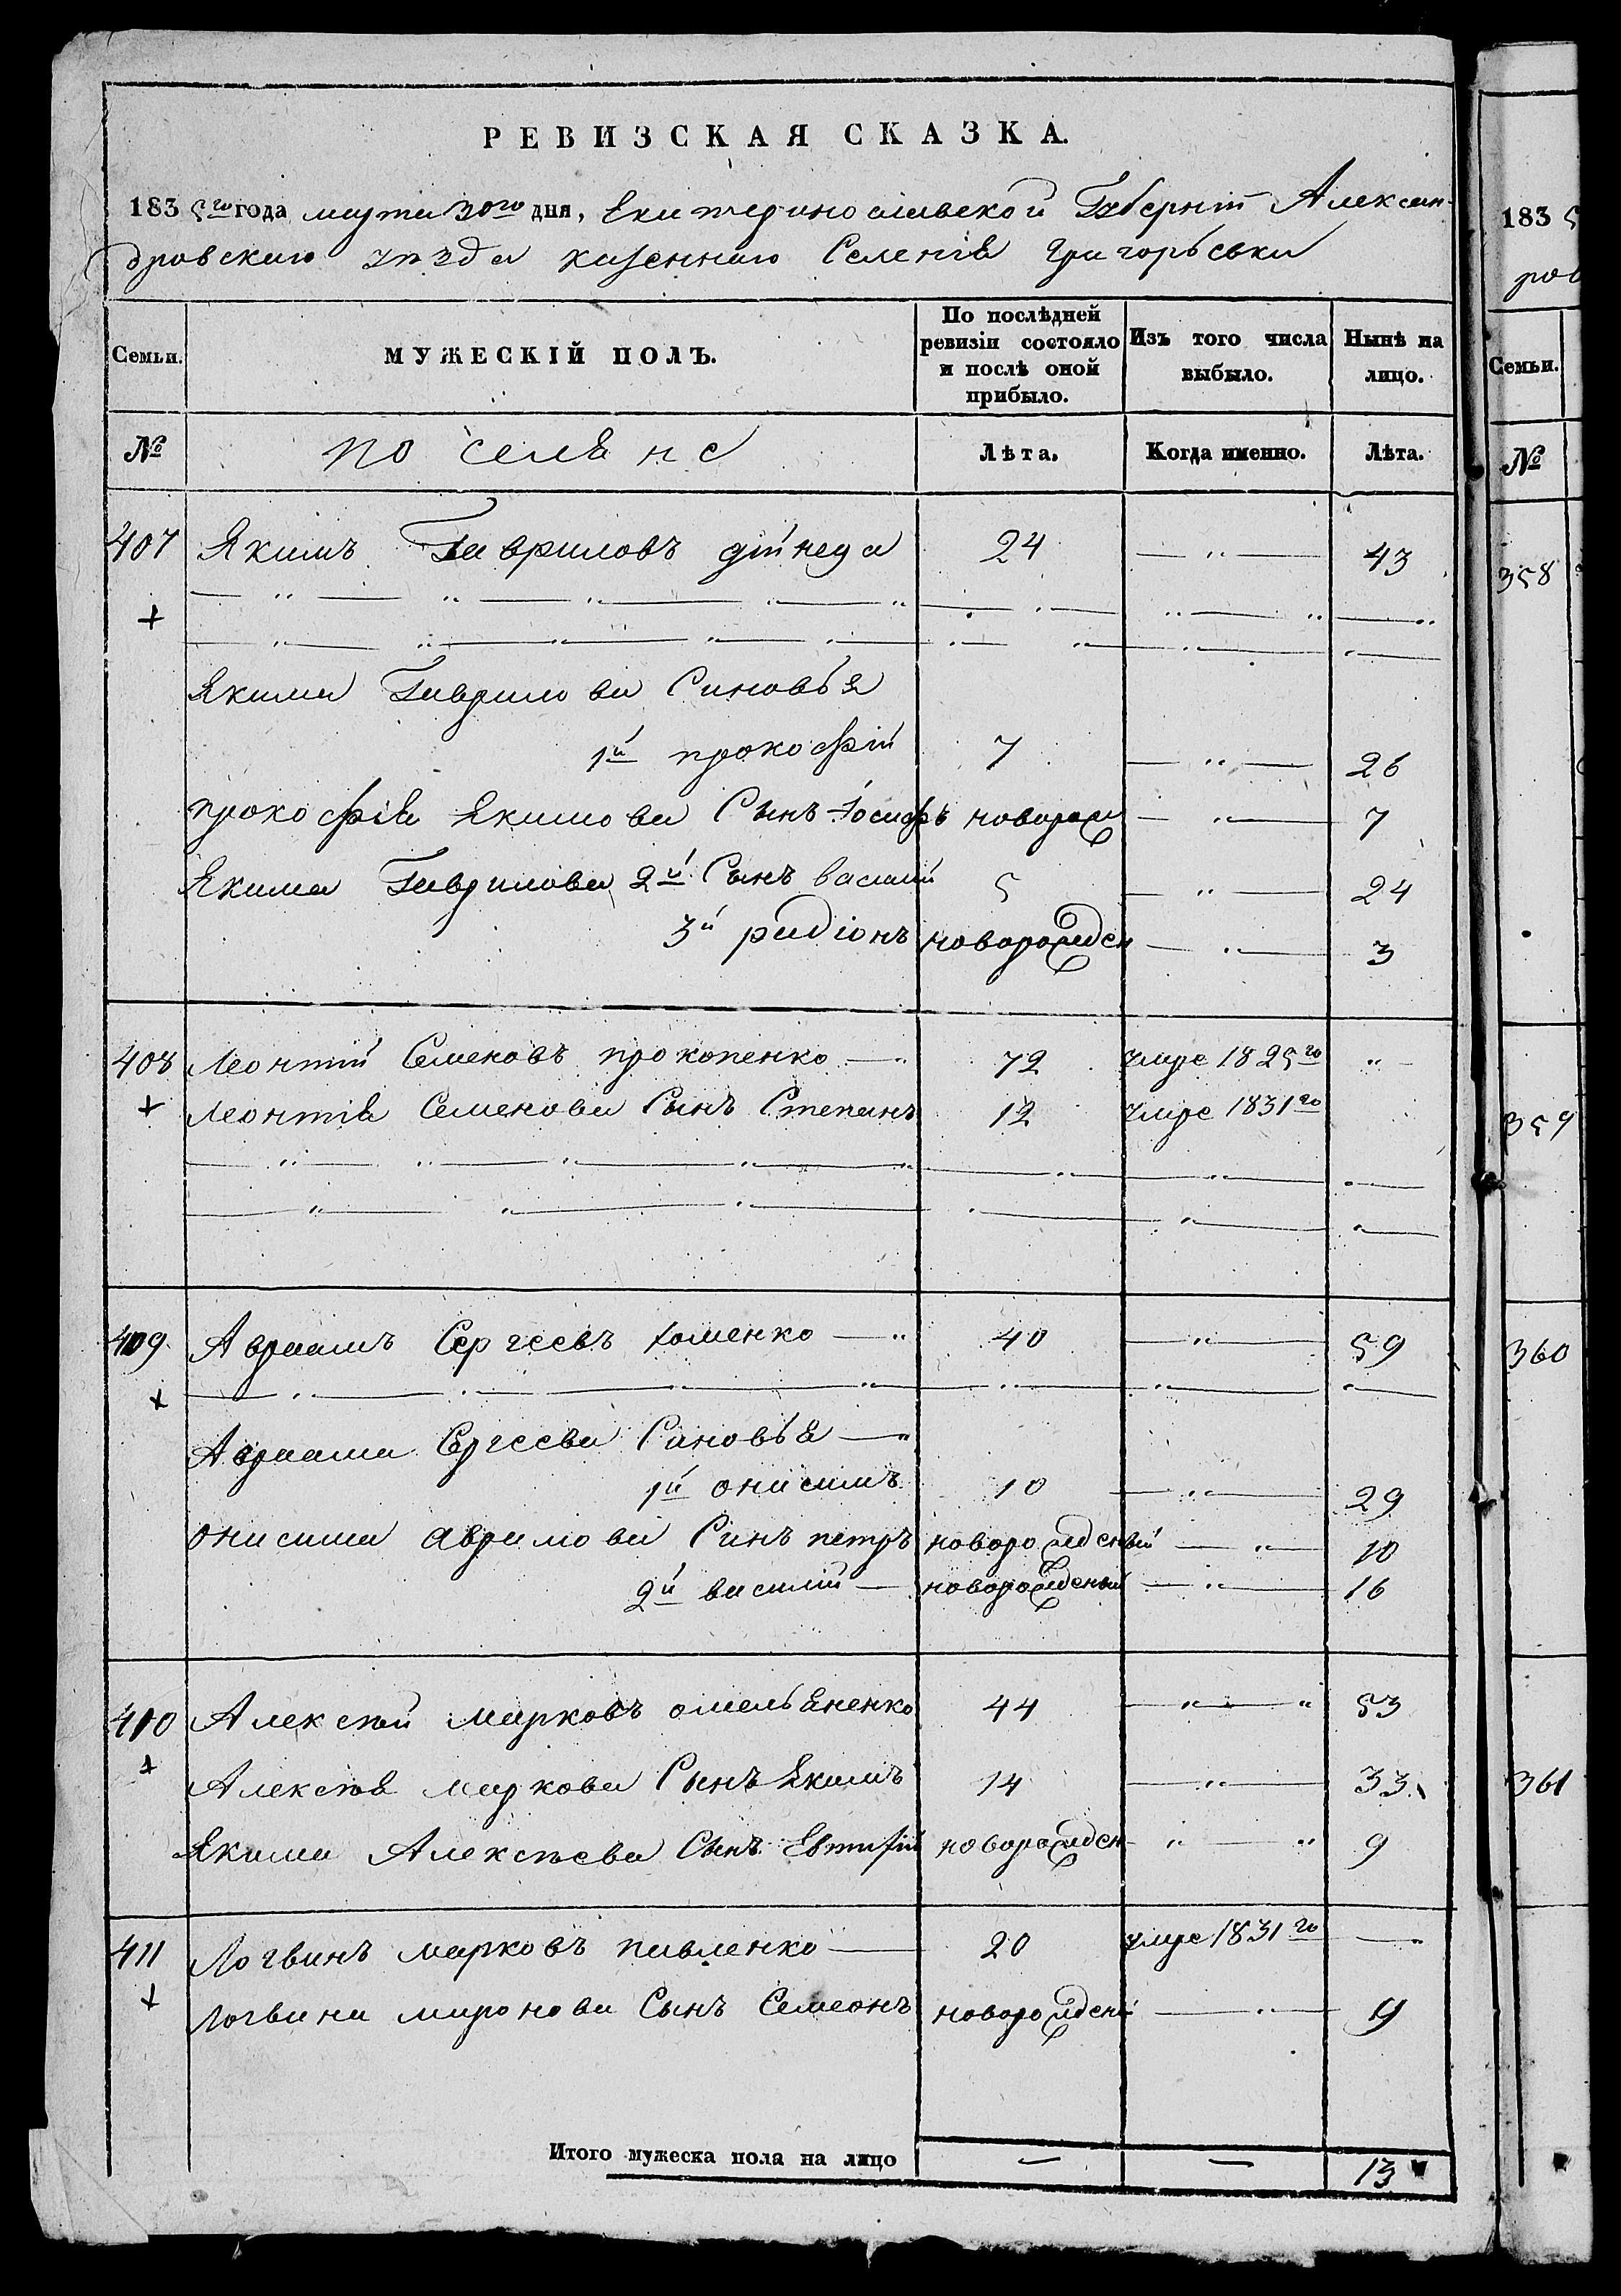 РЕВИЗСКАЯ СКАЗКА.
1835го года марта 30го дня, Екатеринославской Губерніи Алексан-
дровского уѣзда казенного Селенія Григорьевки
Семьи. МУЖЕСКІЙ ПОЛЪ. По послѣдней ревизіи состояло и послѣ оной прибыло. Изъ того числа выбыло. Нынѣ на лицо.
№ поселяне Лѣта. Когда именно. Лѣта.
407 Якимъ Гавриловъ 24 — " — 43
+
Якима Гаврилова Синовья
1й прокофій 7 — " — 26
прокофія Якимова Сынъ Іосифъ новорож — " — 7
Якима Гаврилова 2й Сынъ василій 5 — " — 24
3й радіонъ новорожден — " — 3
408 Леонтій Семеновъ прокопенко — " 72 умре 1825го " —
+ Леонтія Семенова Сынъ Степанъ 12 умре 1831го
409 Авраамъ Сергеевъ хоменко — " 40 — " — 59
+
Авраама Сергеева Синовья — "
1й онисимъ 10 — " — 29
онисима аврамова Синъ петръ новорожденый — " 10
2й василій — новорожденый — " — 16
410 Алексѣй марковъ омельяненко 44 — " — " 53
+ Алексѣя маркова Сынъ Якимъ 14 — " — 33
Якима Алексѣева Сынъ Евтифій новорожден " — " 9
411 Логвинъ марковъ павленко — 20 умре 1831го —
+ Логвина миронова Сынъ Семеонъ новорожден — " — 9
Итого мужеска пола на лицо — — 13
183 5
ров
Семьи.
№
358
359
360
361